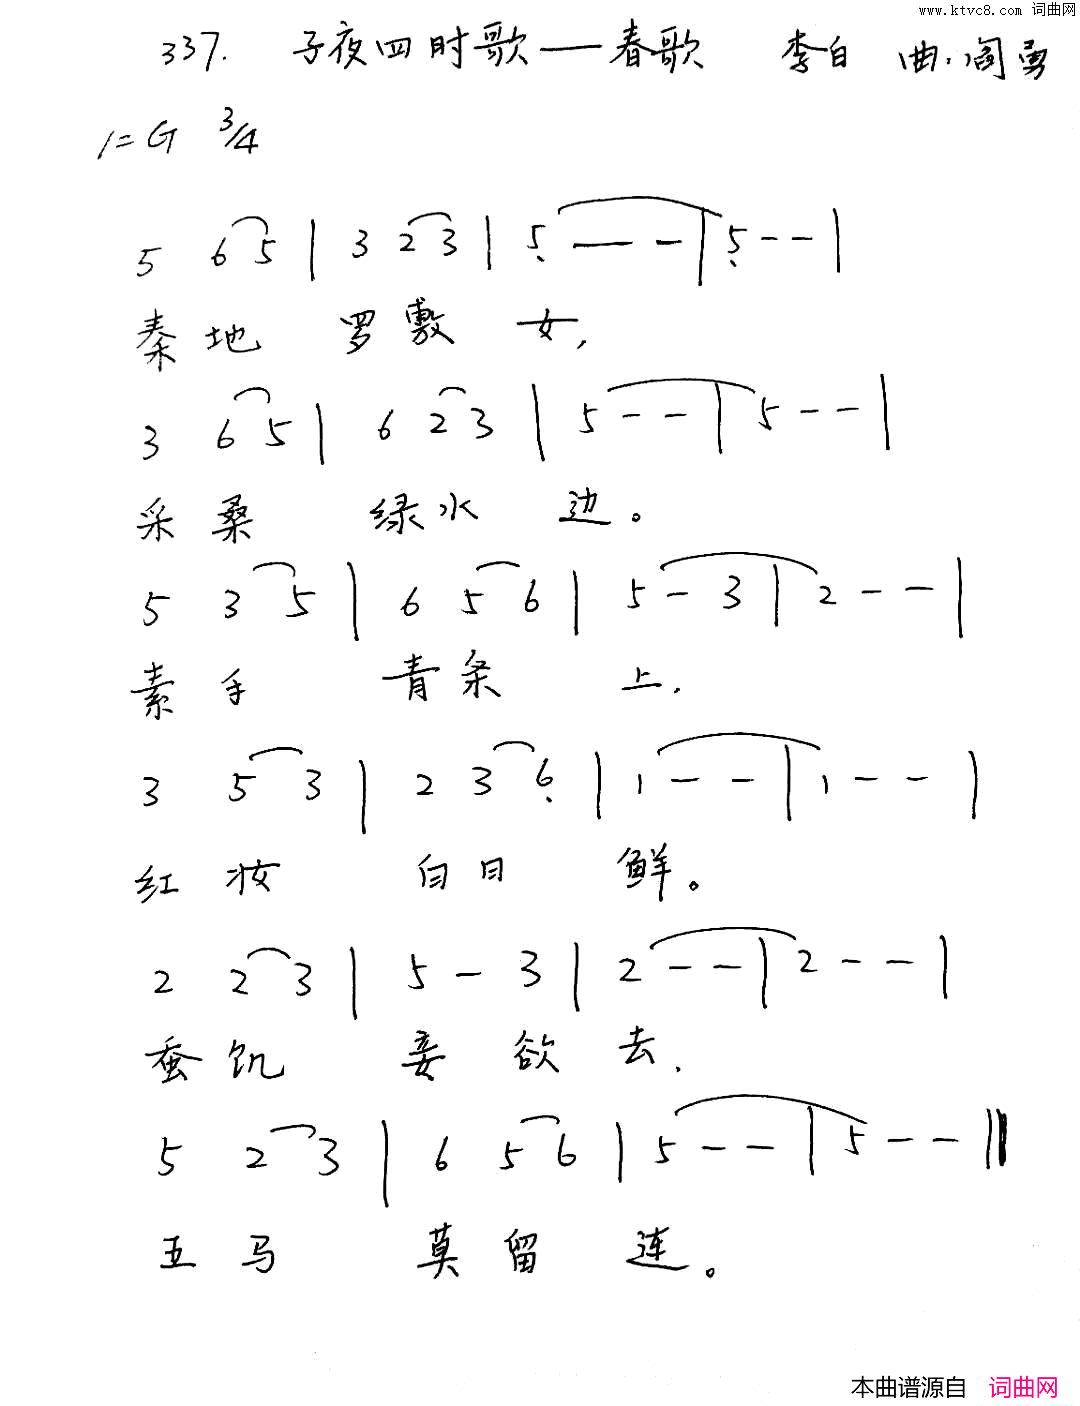 www.ktvc8.com 词曲网
337. 子夜四时歌——春歌 李白 曲:阎勇
1=G 3/4
5 6 5 | 3 2 3 | 5 — - | 5 - - |
秦地 罗敷 女,
3 6 5 | 6 2 3 | 5 - - | 5 - - |
采桑 绿水 边。
5 3 5 | 6 5 6 | 5 - 3 | 2 - - |
素手 青条 上,
3 5 3 | 2 3 6 | 1 - - | 1 - - |
红妆 白日 鲜。
2 2 3 | 5 - 3 | 2 - - | 2 - - |
蚕饥 妾欲去,
5 2 3 | 6 5 6 | 5 - - | 5 - - ||
五马 莫留连。
本曲谱源自 词曲网